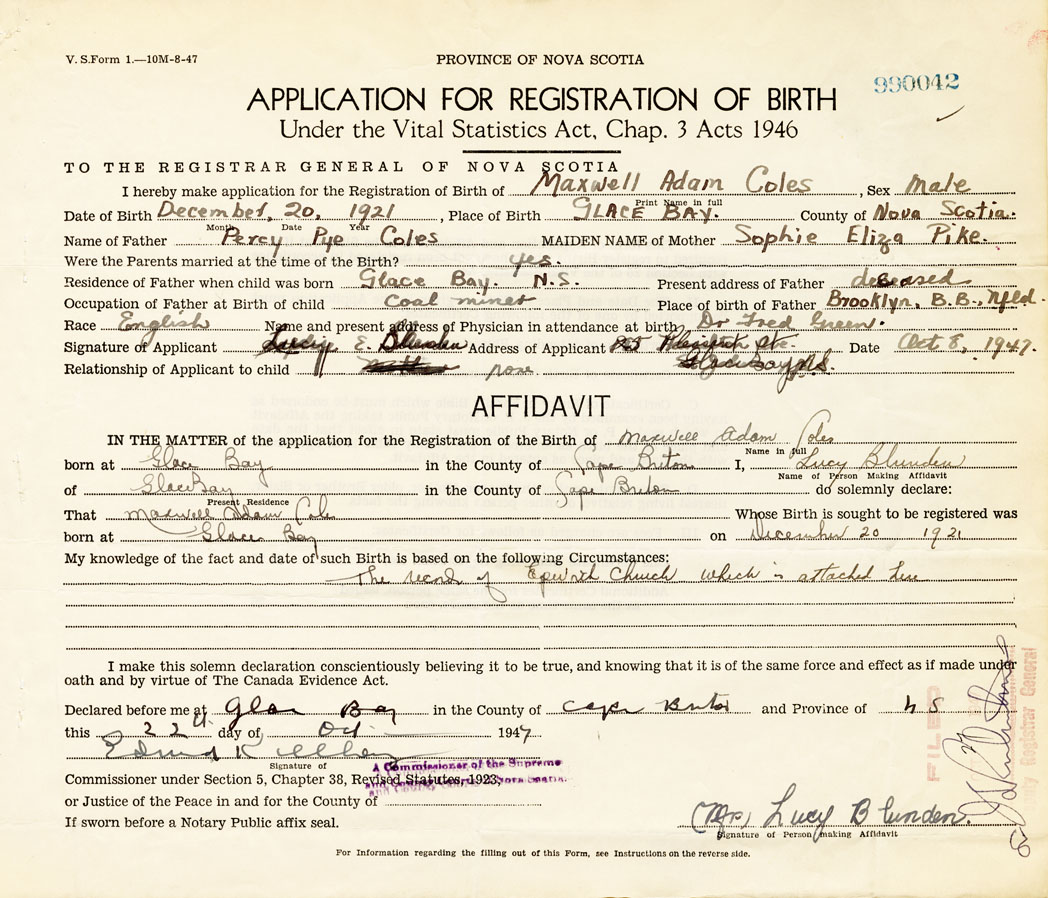 V. S.Form 1.—10M-8-47
PROVINCE OF NOVA SCOTIA
990042
APPLICATION FOR REGISTRATION OF BIRTH
Under the Vital Statistics Act, Chap. 3 Acts 1946
TO THE REGISTRAR GENERAL OF NOVA SCOTIA
I hereby make application for the Registration of Birth of Maxwell Adam Coles, Sex Male
Print Name in full
Date of Birth December, 20, 1921, Place of Birth GLACE BAY. County of Nova Scotia.
Month Date Year
Name of Father Percy Pye Coles MAIDEN NAME of Mother Sophie Eliza Pike.
Were the Parents married at the time of the Birth? yes.
Residence of Father when child was born Glace Bay. N.S. Present address of Father deceased
Occupation of Father at Birth of child Coal miner Place of birth of Father Brooklyn, B.B., Nfld.
Race English Name and present address of Physician in attendance at birth Dr Fred Green.
Signature of Applicant Lucy E. Blunden Address of Applicant Date Oct 8, 1947.
Relationship of Applicant to child none. Glace Bay NS.
AFFIDAVIT
IN THE MATTER of the application for the Registration of the Birth of Maxwell Adam Coles
Name in full
born at Glace Bay in the County of Cape Breton I, Lucy Blunden
Name of Person Making Affidavit
of Glace Bay in the County of Cape Breton do solemnly declare:
Present Residence
That Maxwell Adam Coles Whose Birth is sought to be registered was
born at Glace Bay on December 20 1921
My knowledge of the fact and date of such Birth is based on the following Circumstances:
The record of Epworth Church which is attached here
I make this solemn declaration conscientiously believing it to be true, and knowing that it is of the same force and effect as if made under
oath and by virtue of The Canada Evidence Act.
Declared before me at Glace Bay in the County of Cape Breton and Province of N S
this 22th day of Oct 1947
Signature of
A Commissioner of the Supreme
and County Courts of Nova Scotia.
Commissioner under Section 5, Chapter 38, Revised Statutes, 1923,
or Justice of the Peace in and for the County of
If sworn before a Notary Public affix seal.
(Mrs) Lucy Blunden.
Signature of Person making Affidavit
FILED
Deputy Registrar General
For Information regarding the filling out of this Form, see Instructions on the reverse side.